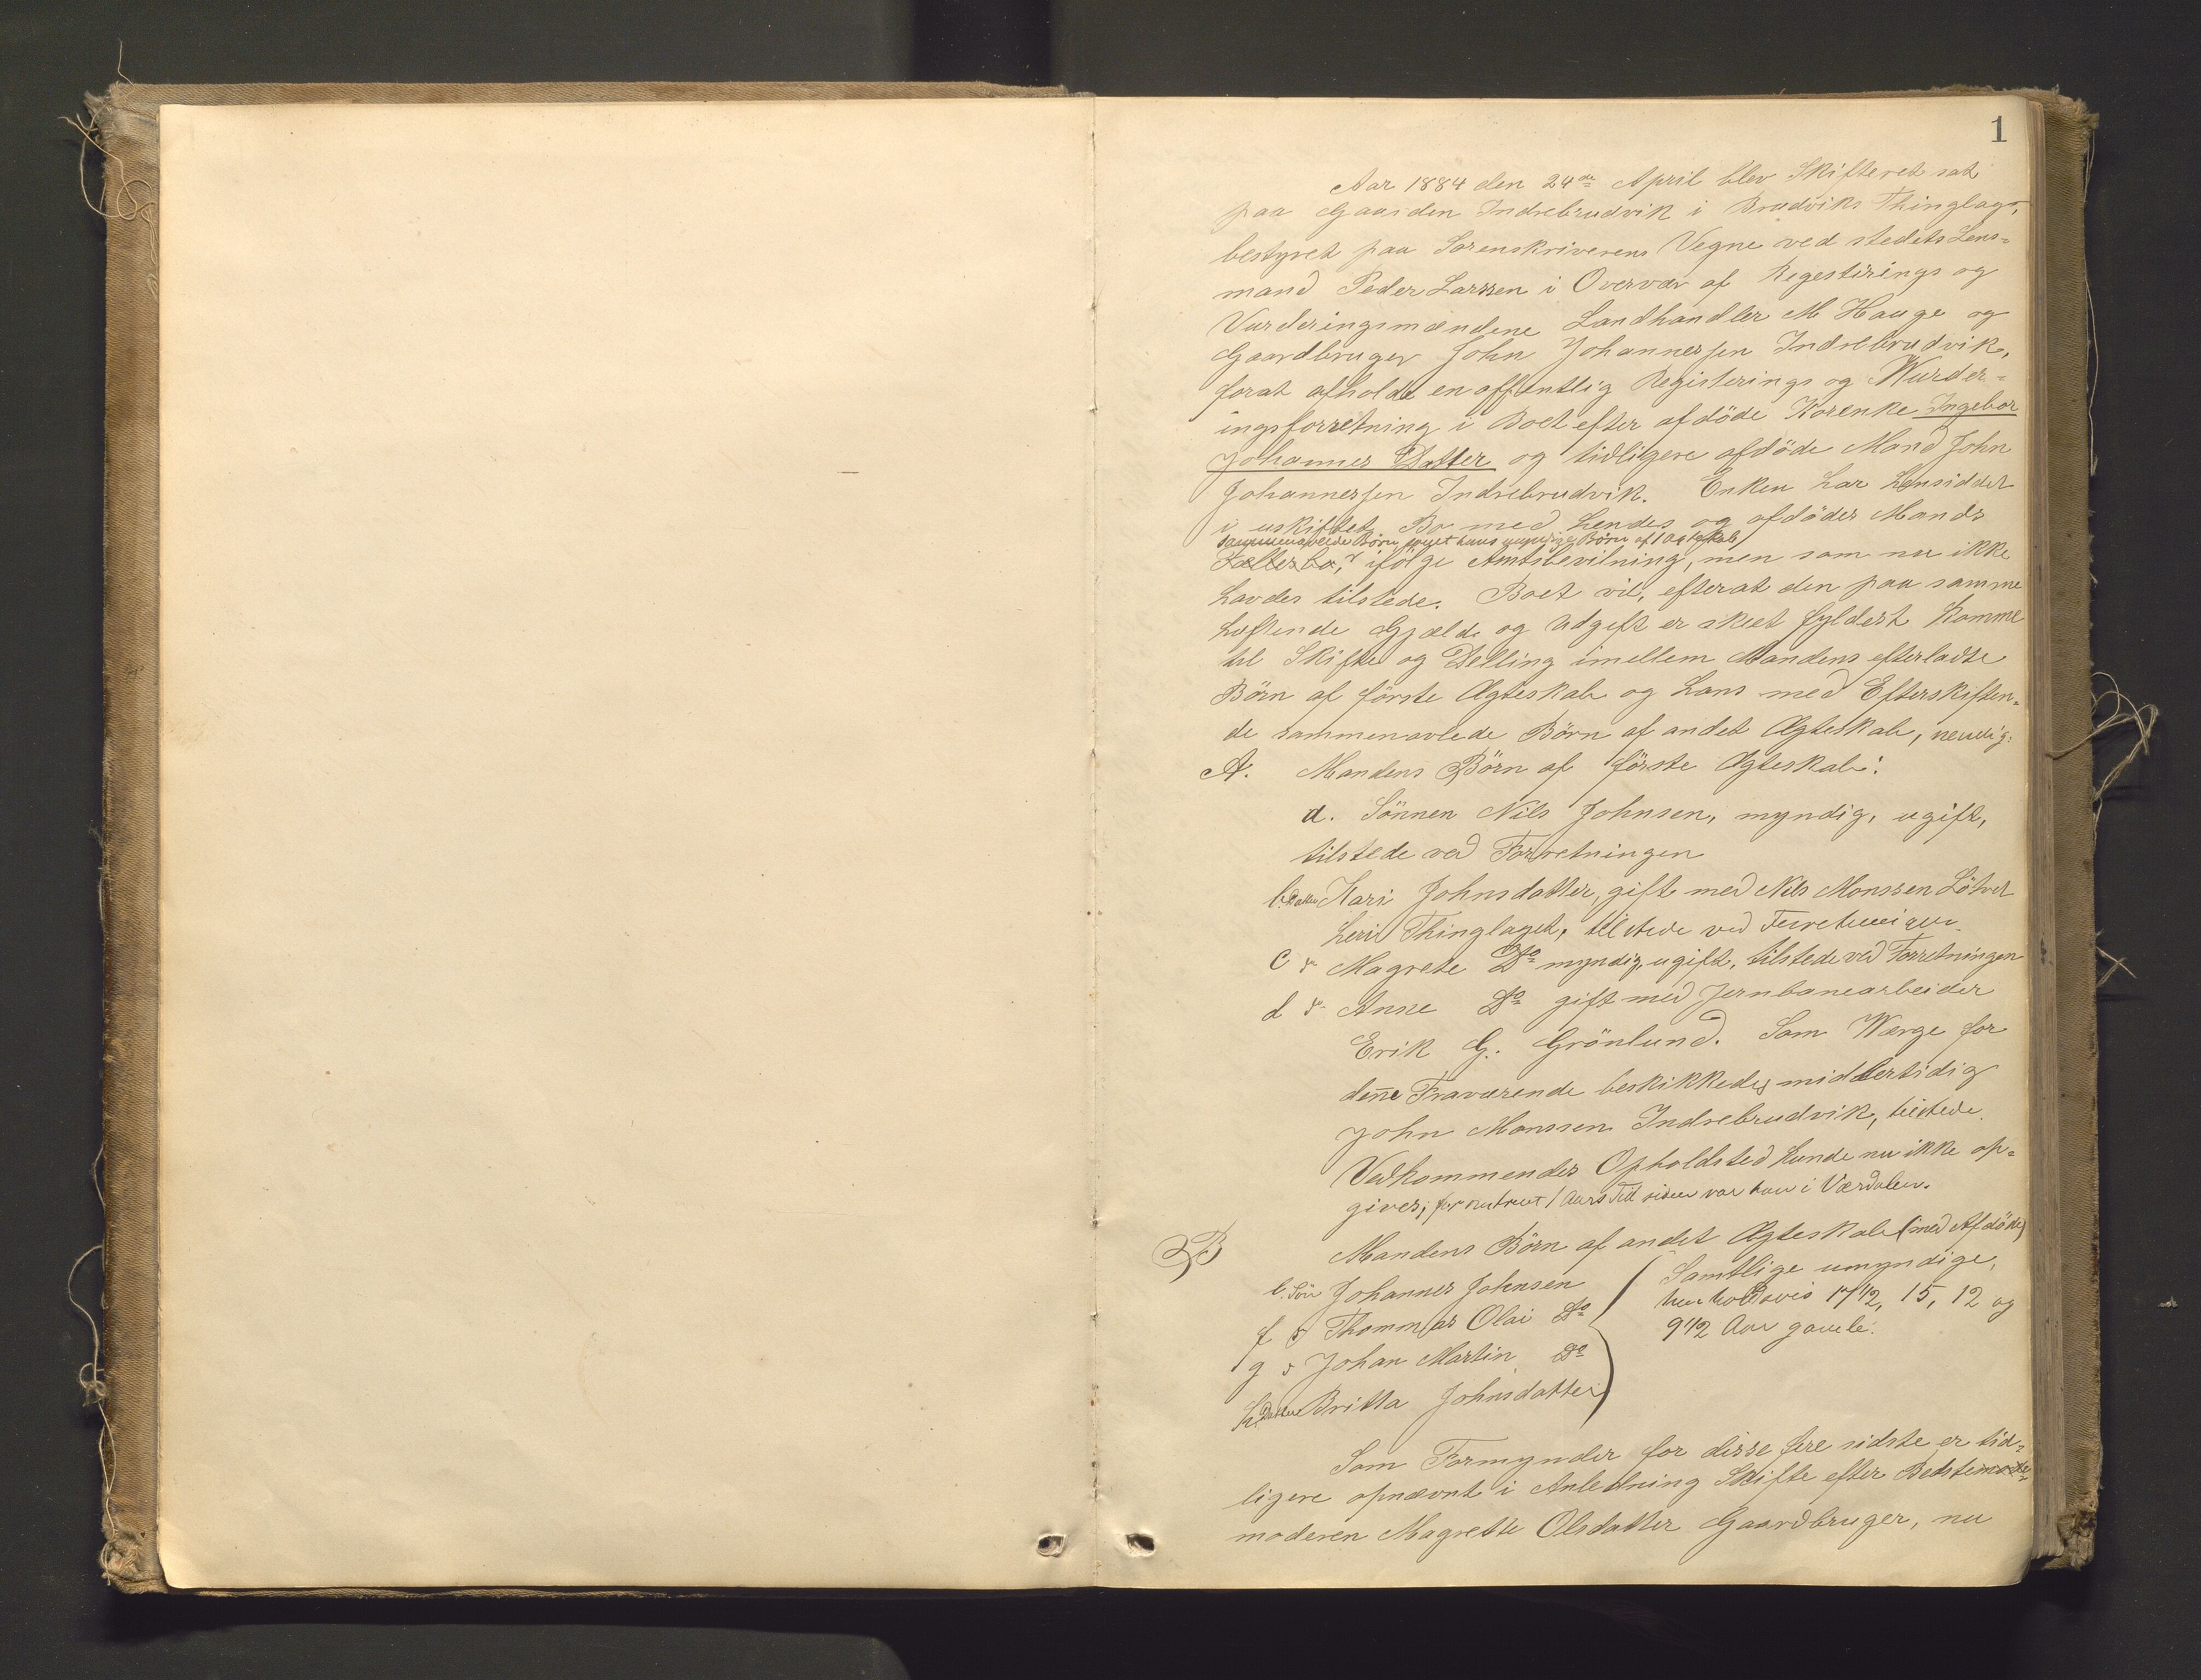 1
Aar 1884 den 24de April blev Skifteret sat
paa Gaarden Indrebrudvik i Brudviks Thinglag,
bestyret paa Sorenskriverens Vegne ved stedets Lens=
mand Peder Larssen i Overvær af Regestirings og
Vurderingsmændene Landhandler M Hauge og
Gaardbruger John Johannessen Indrebrudvik,
forat afholde en offentlig Registerings og Wurder=
ingsforretning i Boet efter afdöde Korenke Ingebor
Johannes Datter og tidligere afdöde Mand John
Johannessen Indrebrudvik. Enken har hensiddet
i uskiftet Bo med hendes og afdödes Mands
sammenavlede Börn samt hans myndige Börn af 1 Ægteskab
Fællesbo, ifölge Amtsbevilning, men som nu ikke
havdes tilstede. Boet vil, efterat den paa samme
heftende Gjæld og Udgift er skeet fyldest komme
til Skifte og Delling imellem Mandens efterladte
Börn af förste Ægteskab og hans med Efterskiften=
de sammenavlede Börn af andet Ægteskab, nemlig:
A. Mandens Börn af förste Ægteskab:
a. Sönnen Nils Johnsen, myndig, ugift,
tilstede ved Forretningen
b. Datter Kari Johnsdatter, gift med Nils Monssen
heri Thinglaget, tilstede ved Forretningen.
c Magrete Do myndig, ugift, tilstede ved Forretningen
d Anne Do gift med Jernbanearbeider
Erik G. Grönlund. Som Værge for
denne Fraværende beskikkedes midlertidig
John Monssen Indrebrudvik, tilstede.
Vedkommendes Opholdsted kunde nu ikke op=
gives; for omtrent 1 Aars Tid siden var han i Værdalen.
B Mandens Börn af andet Ægteskab (med Afdöde)
e. Sön Johannes Johnsen
f Thommas Olai Do
g Johan Martin Do
h. Datter Britta Johnsdatter
Samtlige umyndige,
henholdsvis 17 1/2, 15, 12 og
9 1/2 Aar gamle.
Som Formynder for disse fire sidste er tid=
ligere opnævnt i Anledning Skifte efter Bedstemode=
moderen Magrethe Olsdatter Gaardbruger, nu